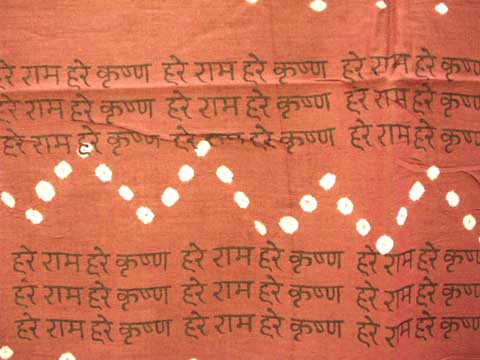 हरे राम हरे कृष्ण हरे राम हरे कृष्ण हरे राम हरे कृष्ण
हरे राम हरे कृष्ण हरे राम हरे कृष्ण हरे राम हरे कृष्ण
हरे राम हरे कृष्ण हरे राम हरे कृष्ण हरे राम हरे कृष्ण
हरे राम हरे कृष्ण हरे राम हरे कृष्ण हरे राम हरे कृष्ण
हरे राम हरे कृष्ण हरे राम हरे कृष्ण हरे राम हरे कृष्ण
हरे राम हरे कृष्ण हरे राम हरे कृष्ण हरे राम हरे कृष्ण